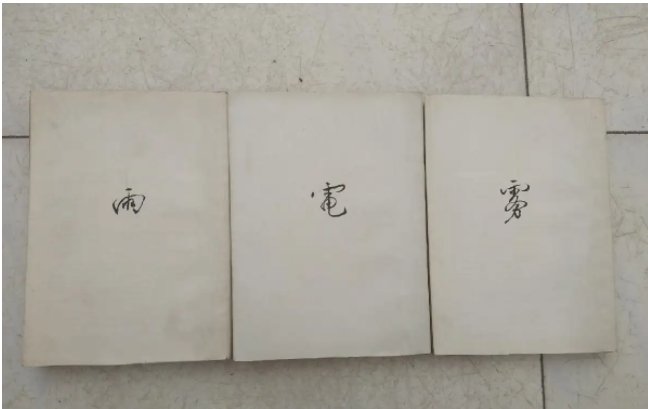 雨
電
霧